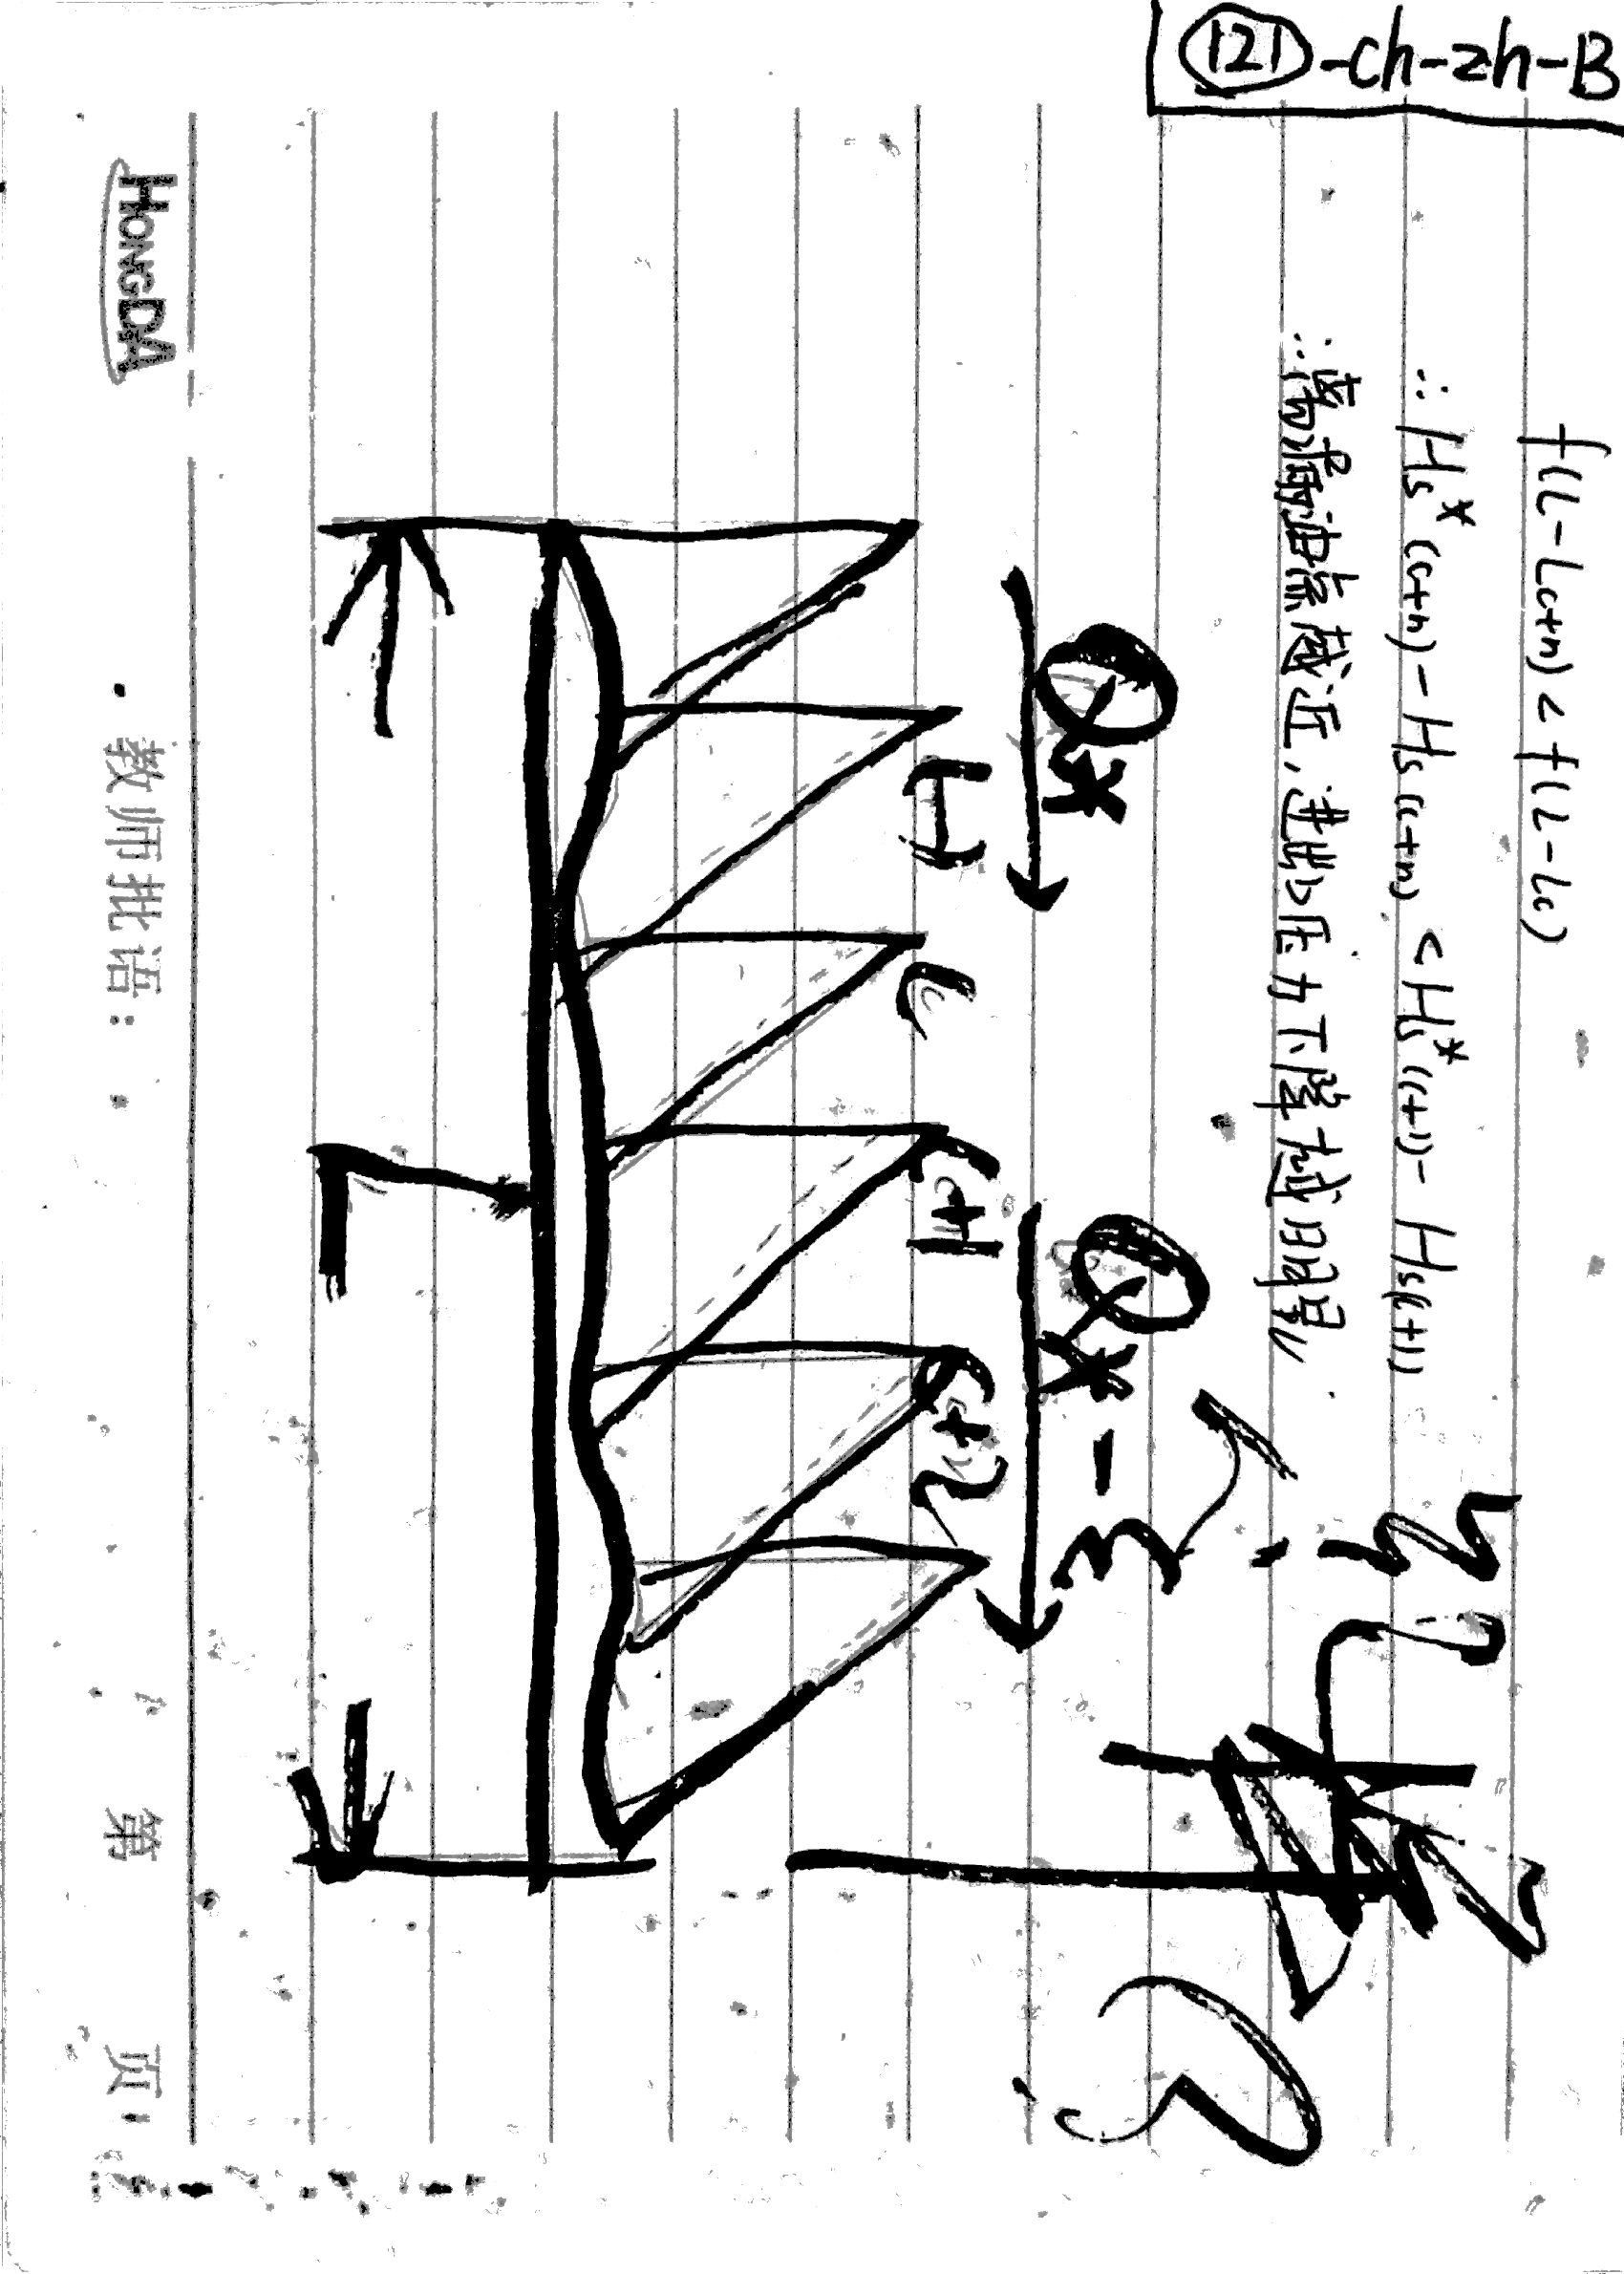 121-ch-zh-B
f(L-Lc+n) < f(L-Lc)
∴ Hs*(c+n) - Hs(c+n) < Hs*(c+1) - Hs(c+1)
∴离漏油点越近,进出压力下降越明显
Q*
Q*-
c
c+1
c+2
L
HONGDA
·教师批语:
第 页: